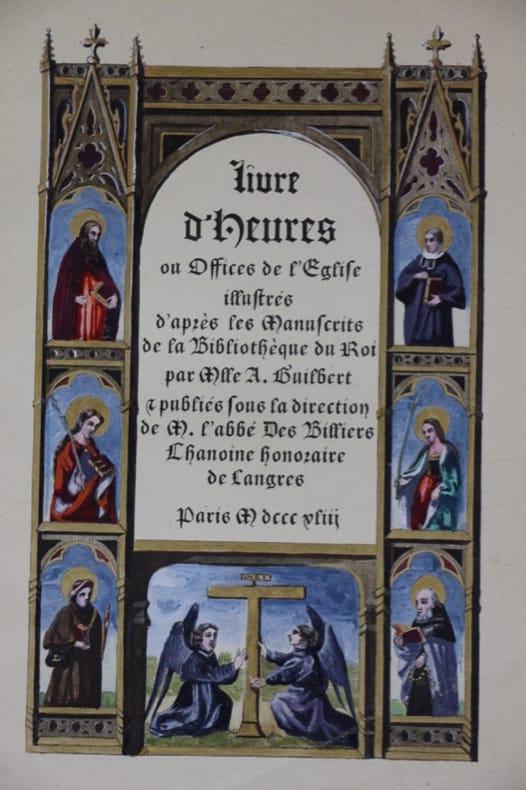 livre
d'Heures
ou Offices de l'Egliſe
illuſtrés
d'après les Manuſcrits
de la Bibliothèque du Roi
par Mlle A. Guilbert
& publiés ſous la direction
de M. l'abbé Des Billiers
Chanoine honoraire
de Langres
Paris M dccc xliij